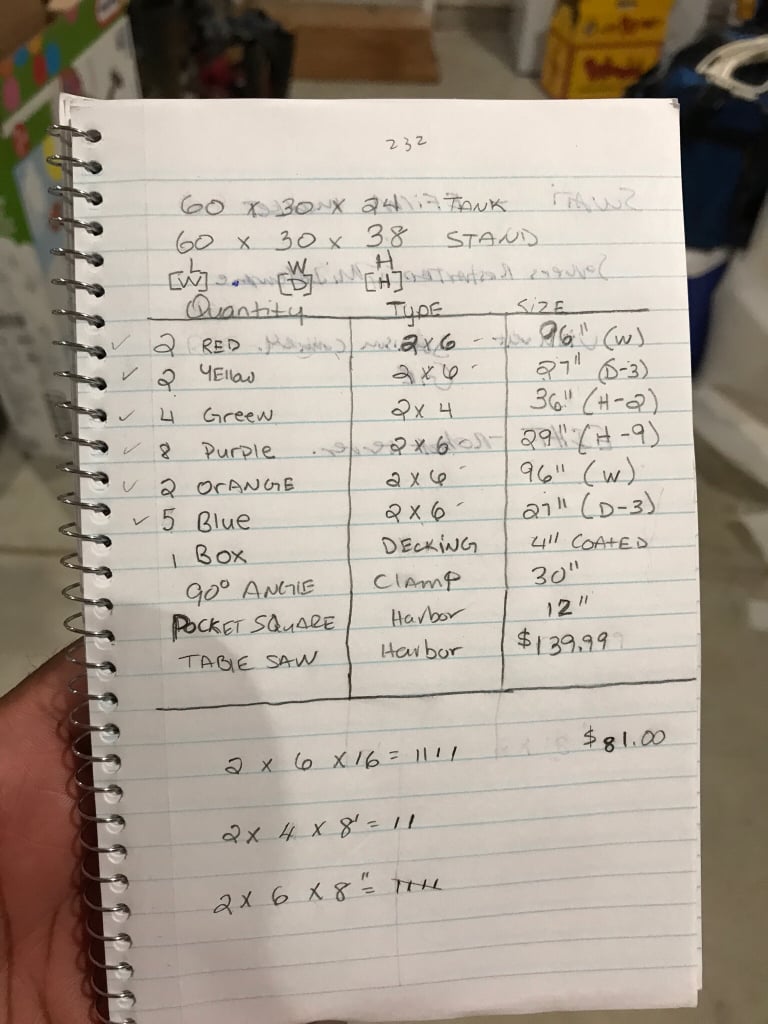 232
60 x 30 x 24 TANK
60 x 30 x 38 STAND
L W H
[W] [D] [H]
Quantity TYPE SIZE
✓ 2 RED 2x6 - 96" (W)
✓ 2 YEllow 2x6 - 27" (D-3)
✓ 4 Green 2x4 36" (H-2)
✓ 8 Purple 2x6 29" (H-9)
✓ 2 ORANGE 2x6 - 96" (W)
✓ 5 Blue 2x6 - 27" (D-3)
1 BOX DECKING 4" COATED
90° ANGlE Clamp 30"
POCKET SQUARE Harbor 12"
TABlE SAW Harbor $139.99
$81.00
2 x 6 x 16 = 1111
2 x 4 x 8' = 11
2 x 6 x 8" =